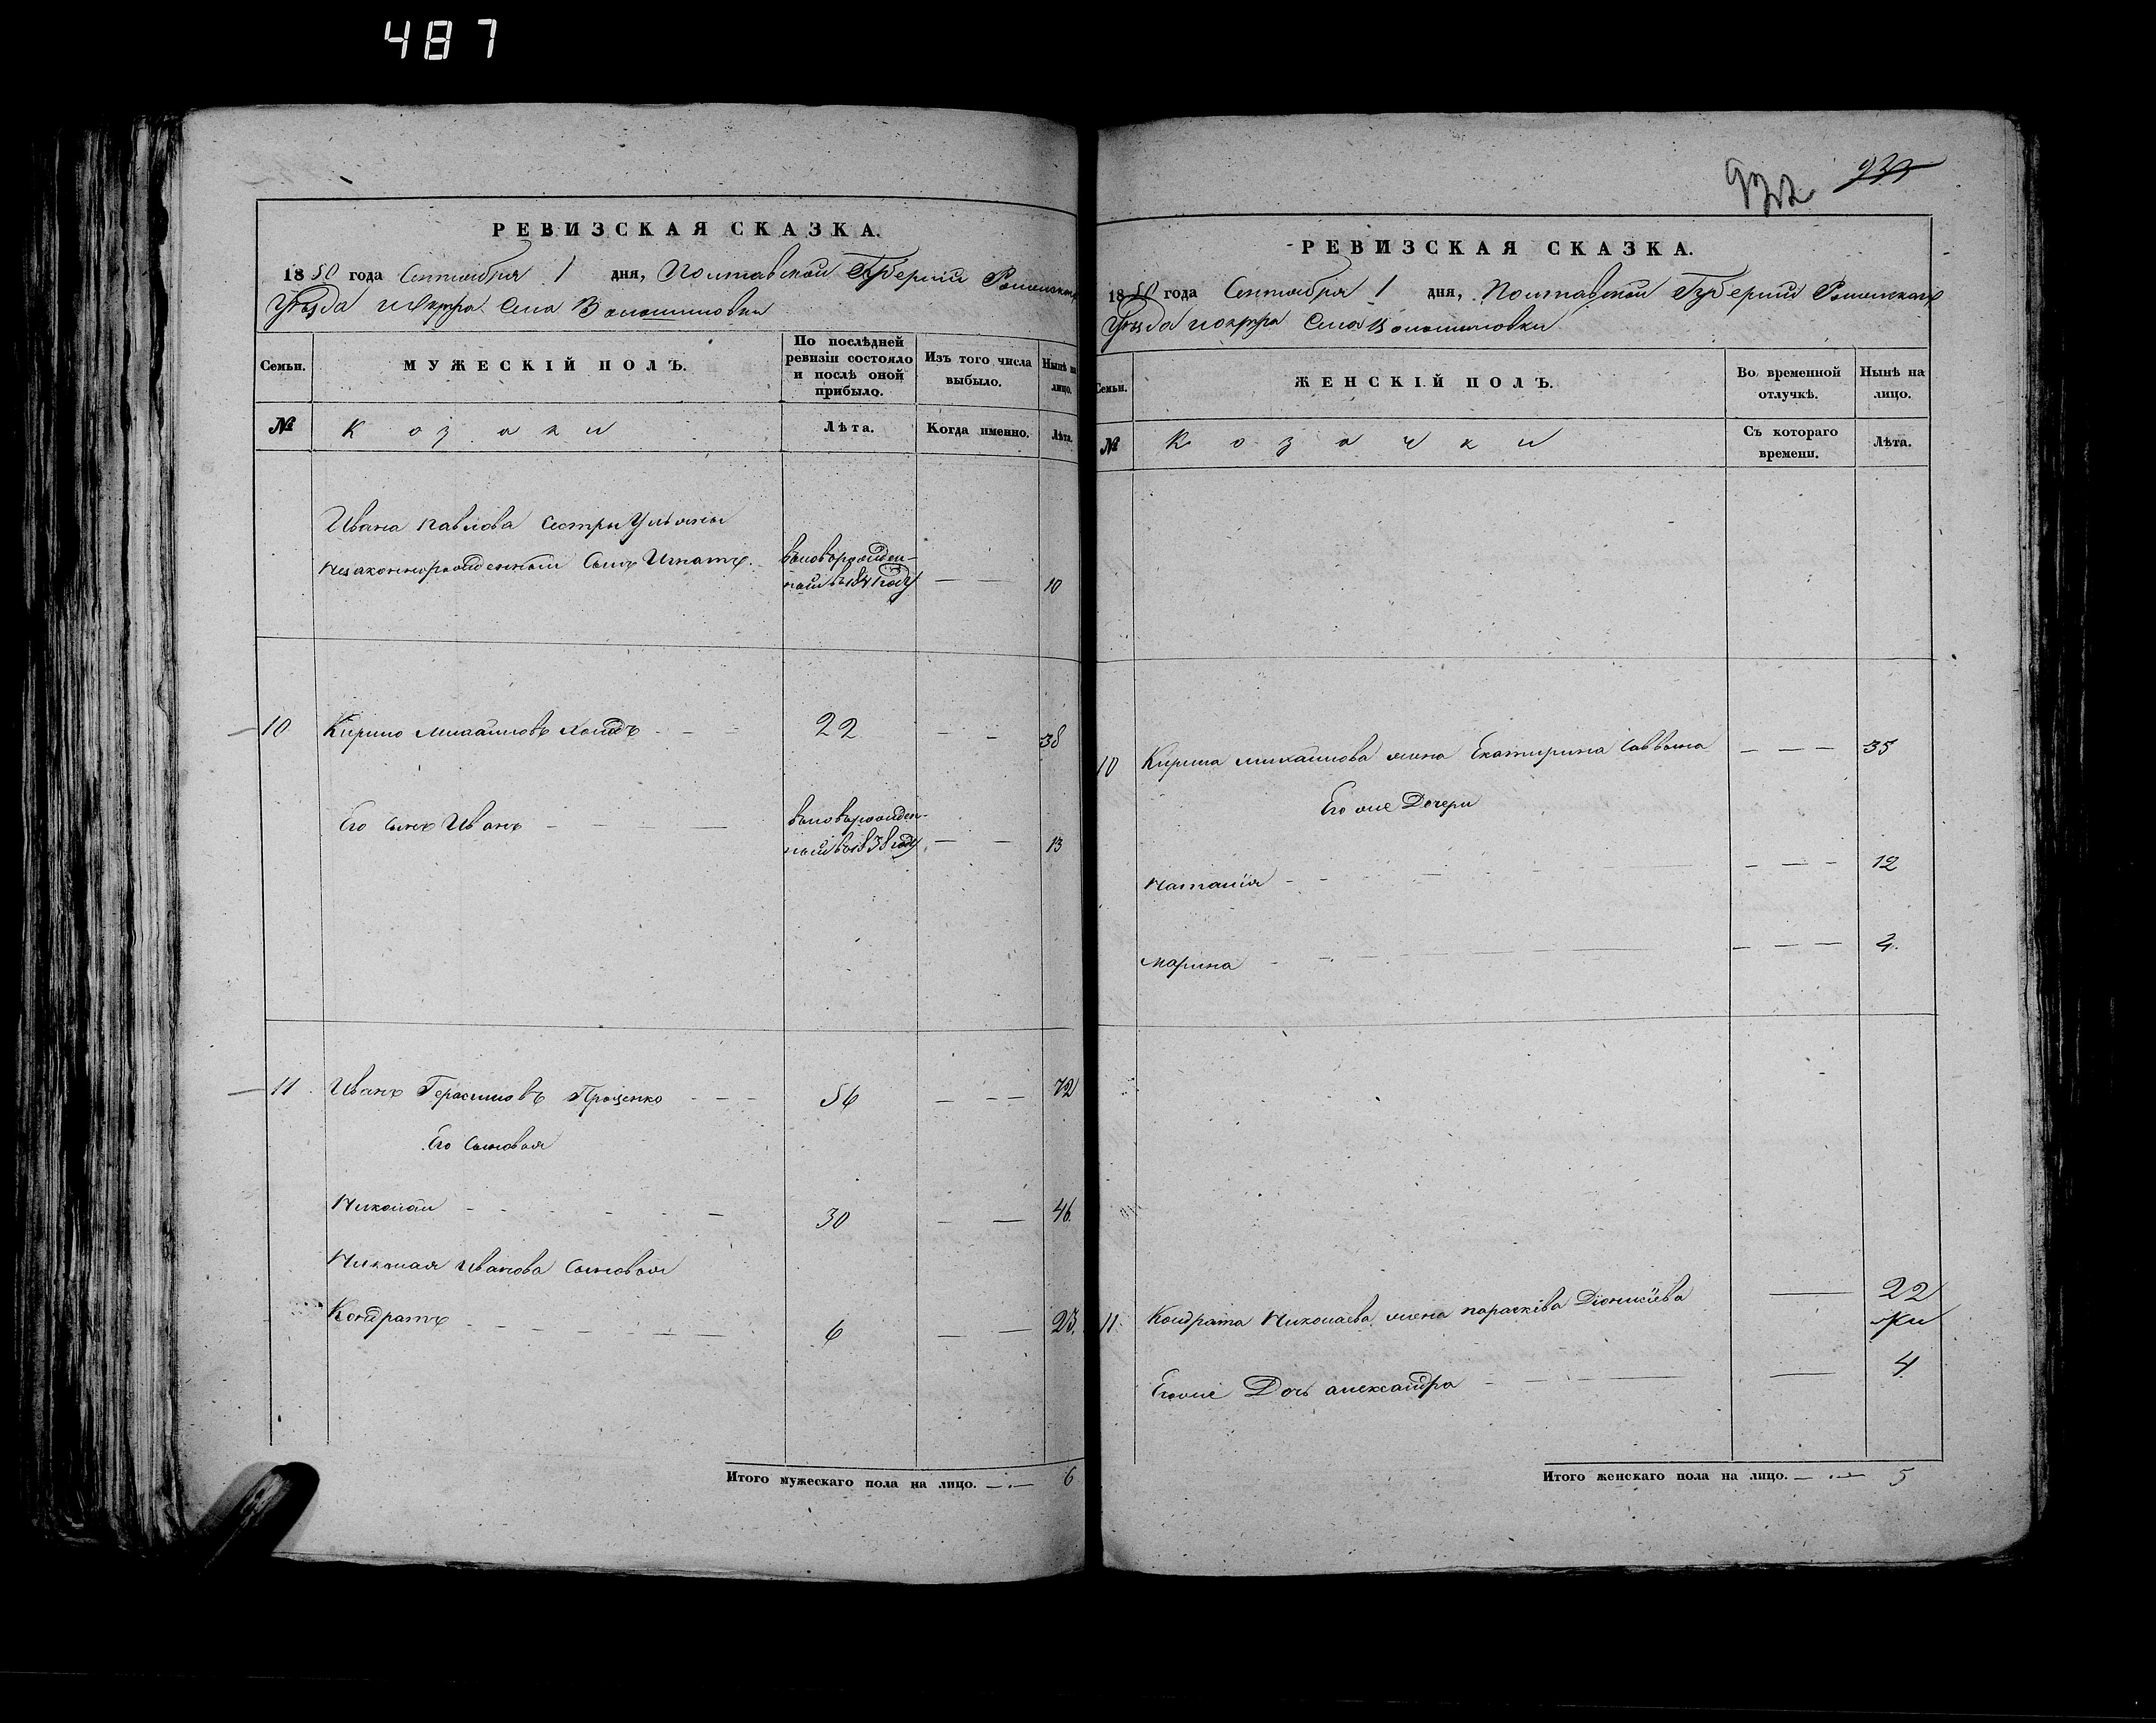 487
932 932
РЕВИЗСКАЯ СКАЗКА.
1850 года Сентября 1 дня, Полтавской Губерніи Роменскаго
Уѣзда Села Волошиновки
Семьи.
МУЖЕСКІЙ ПОЛЪ.
По послѣдней ревизіи состояло и послѣ оной прибыло.
Изъ того числа выбыло.
Нынѣ на лицо.
№
Козаки
Лѣта.
Когда именно.
Лѣта.
Ивана Павлова Сестры Ульяны
Незаконнорожденный Сынъ Игнатъ. вновьрожден-
ный въ 1841 году — — 10
10 Кирило Михайловъ - - - 22 — — 38
Его Сынъ Иванъ - — — — вновьрожден-
ный в 1838 году — — 13
11 Иванъ Герасимовъ Проценко - - - 56 — — — 72
Его Сыновья
Николай - - - - - — 30 — — 46
Николая Иванова Сыновья
Кондратъ - - - — — — 6 — — 23.
Итого мужескаго пола на лицо. — . — 6
РЕВИЗСКАЯ СКАЗКА.
1850 года Сентября 1 дня, Полтавской Губерніи Роменскаго
Уѣзда Села Волошиновки
Семьи.
ЖЕНСКІЙ ПОЛЪ.
Во временной отлучкѣ.
Нынѣ на лицо.
№
Козачки
Съ котораго времени.
Лѣта.
10 Кирила Михайлова жена Екатирина Саввина — — — 35
Его же Дочери
Наталія - - - — — — 12
Марина - - - — — — 2.
11. Кондрата Николаева жена Параскева Діонисіева — 22
Егоже Дочь Александра - - — — 4
Итого женскаго пола на лицо. — . — 5